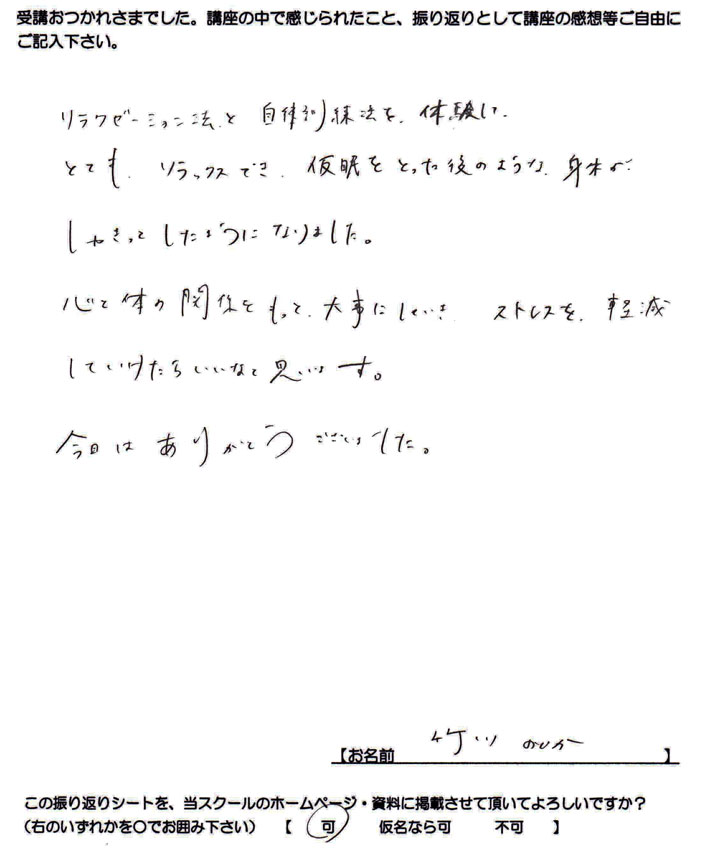 受講おつかれさまでした。講座の中で感じられたこと、振り返りとして講座の感想等ご自由に
ご記入下さい。
リラクゼーション法と 自律訓練法を、体験し、
とても、リラックスでき、仮眠をとった後のような、身体が
しゃきっとしたようになりました。
心と体の関係をもって、大事にしていき ストレスを、軽減
していけたらいいなと思います。
今日は ありがとう ございました。
【お名前 竹川 】
この振り返りシートを、当スクールのホームページ・資料に掲載させて頂いてよろしいですか？
（右のいずれかを〇でお囲み下さい） 【 可 仮名なら可 不可 】